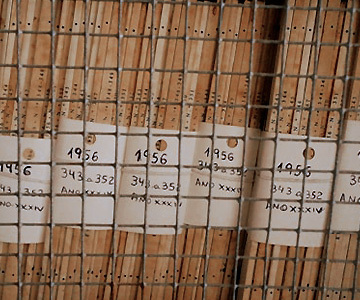 1956
343 a 352
ANO XXXIV
1956
343 a 352
1956
343 a 352
ANO XXXIV
1956
343 a 352
ANO XXXIV
1956
343 a 352
ANO XXXIV